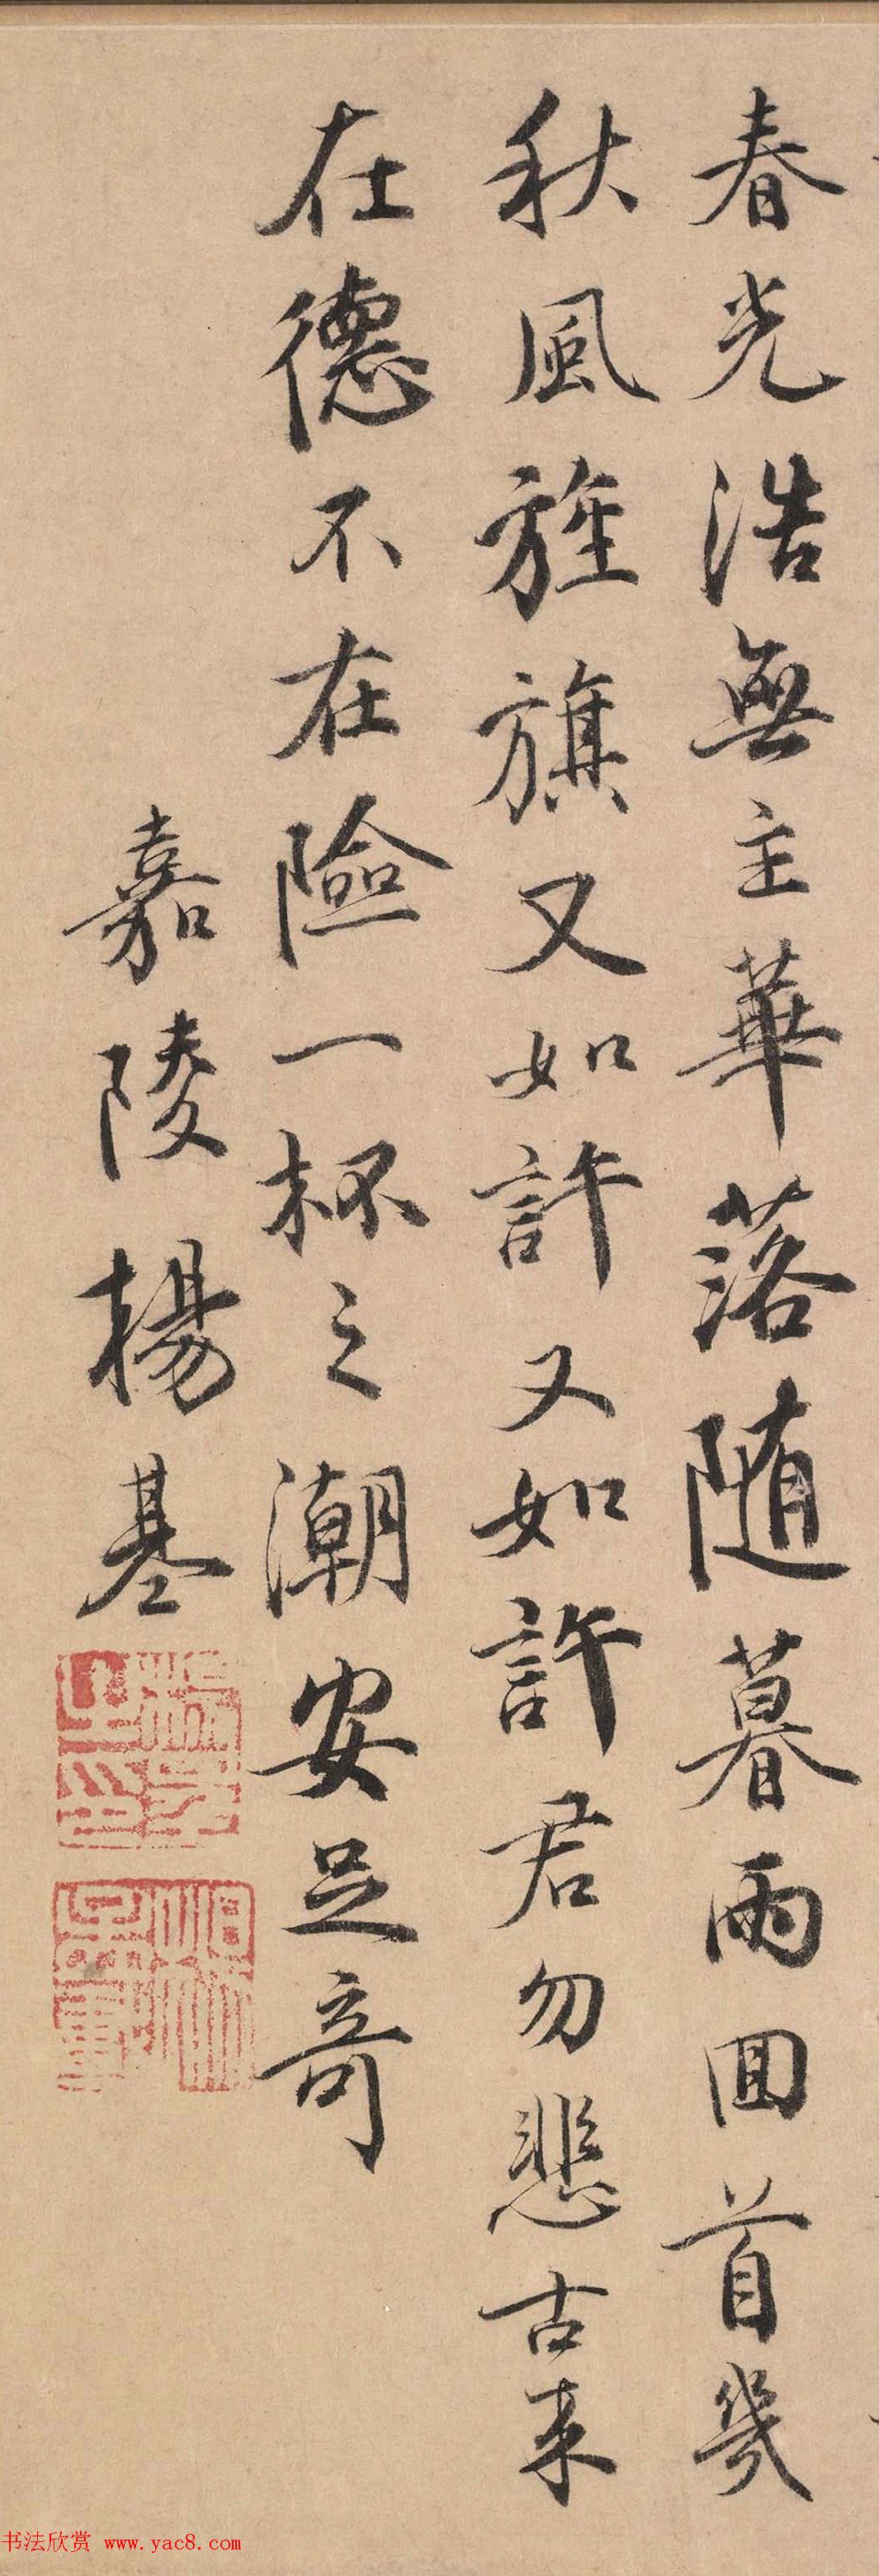 春光浩無主華落随暮雨回首幾
秋風旌旗又如許又如許君勿悲古来
在德不在險一杯之潮安足奇
嘉陵楊基
书法欣赏 www.yac8.com